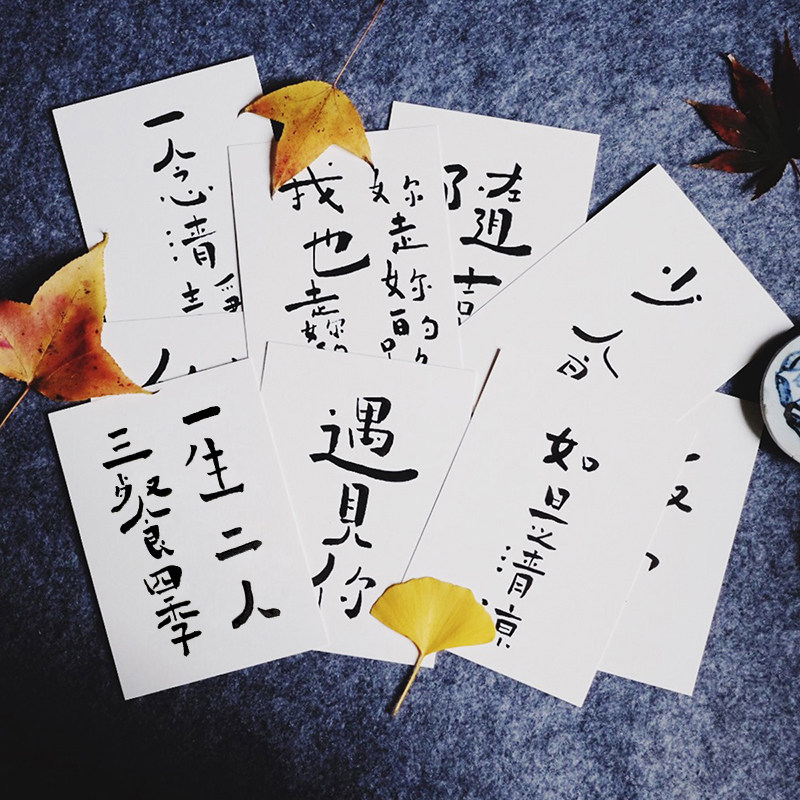 一念清靜
妳走妳的
我也走妳
隨喜
一生二人
三餐四季
遇見你
如是清涼